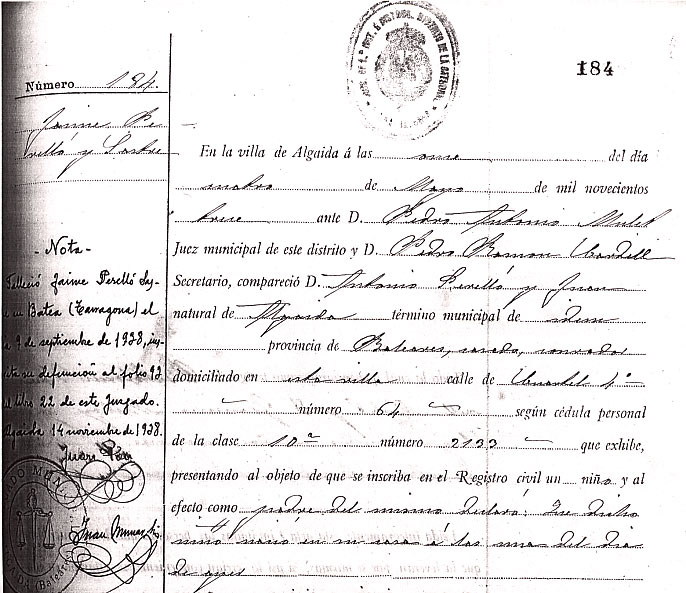 184
Número 184.
Jaime Pe-
relló y Sastre
En la villa de Algaida á las once del día
cuatro de Mayo de mil novecientos
trece ante D. Pedro Antonio Mulet
Juez municipal de este distrito y D. Pedro Ramon
Secretario, compareció D. Antonio Perelló y Juan
natural de Algaida término municipal de idem
provincia de Baleares, casado,
domiciliado en esta villa calle de 4º
número 64 según cédula personal
de la clase 10ª número 2133 que exhibe,
presentando al objeto de que se inscriba en el Registro civil un niño y al
efecto como padre del mismo declaró: Que dicho
niño nació en su casa á las una del dia
de ayer
- Nota -
Falleció Jaime Perelló
en Batea (Tarragona) el
9 de septiembre de 1938,
su defunción al folio 92
libro 22 de este Juzgado.
Algaida 14 noviembre de 1938.